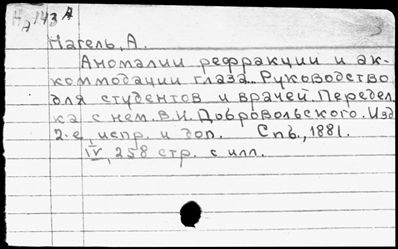 Нагель, А.
Аномалии рефракции и ак-
коммодации глаза. Руководство
для студентов и врачей. Передел
ка с нем. В.И. Добровольского. Изд
2-е, испр. и доп. Спб., 1881.
IV, 258 стр. с илл.